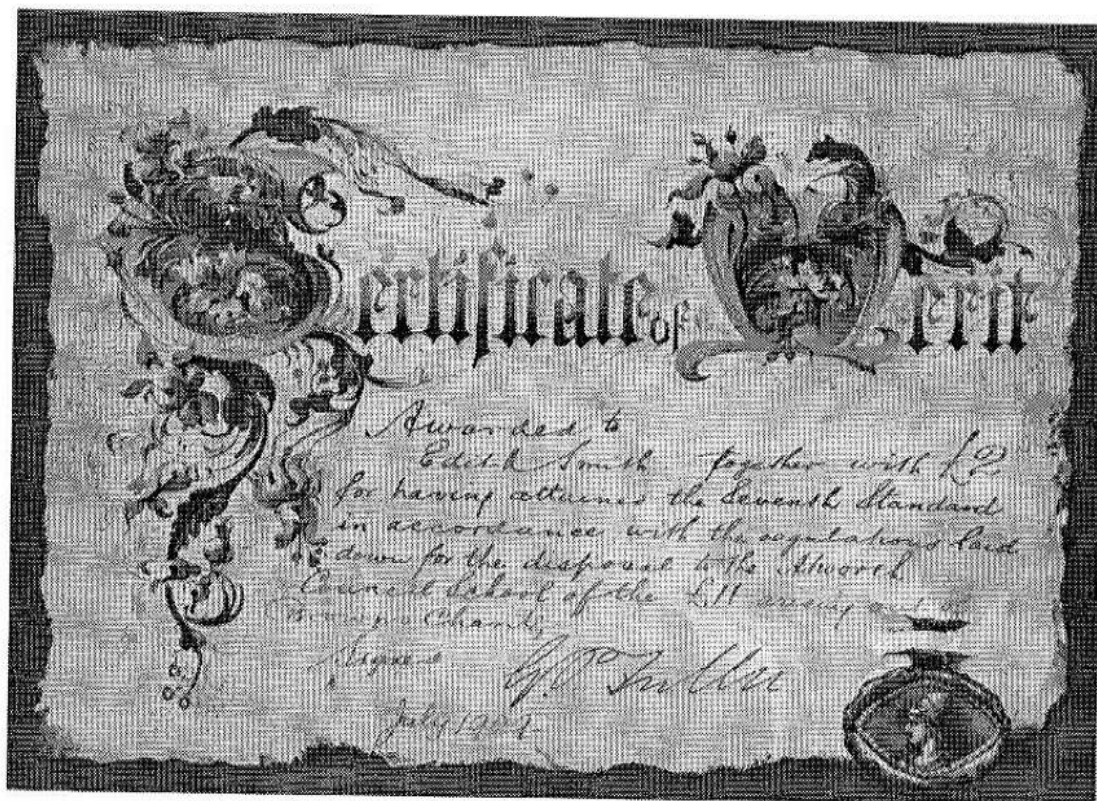 Certificate of Merit
Awarded to
Edith Smith together with £2
for having attained the Seventh Standard
in accordance with the regulations laid
down for the disposal to the Atworth
Council School of the £11 arising out of
Brown's Charity
Signed G. P. Fuller
July 1907